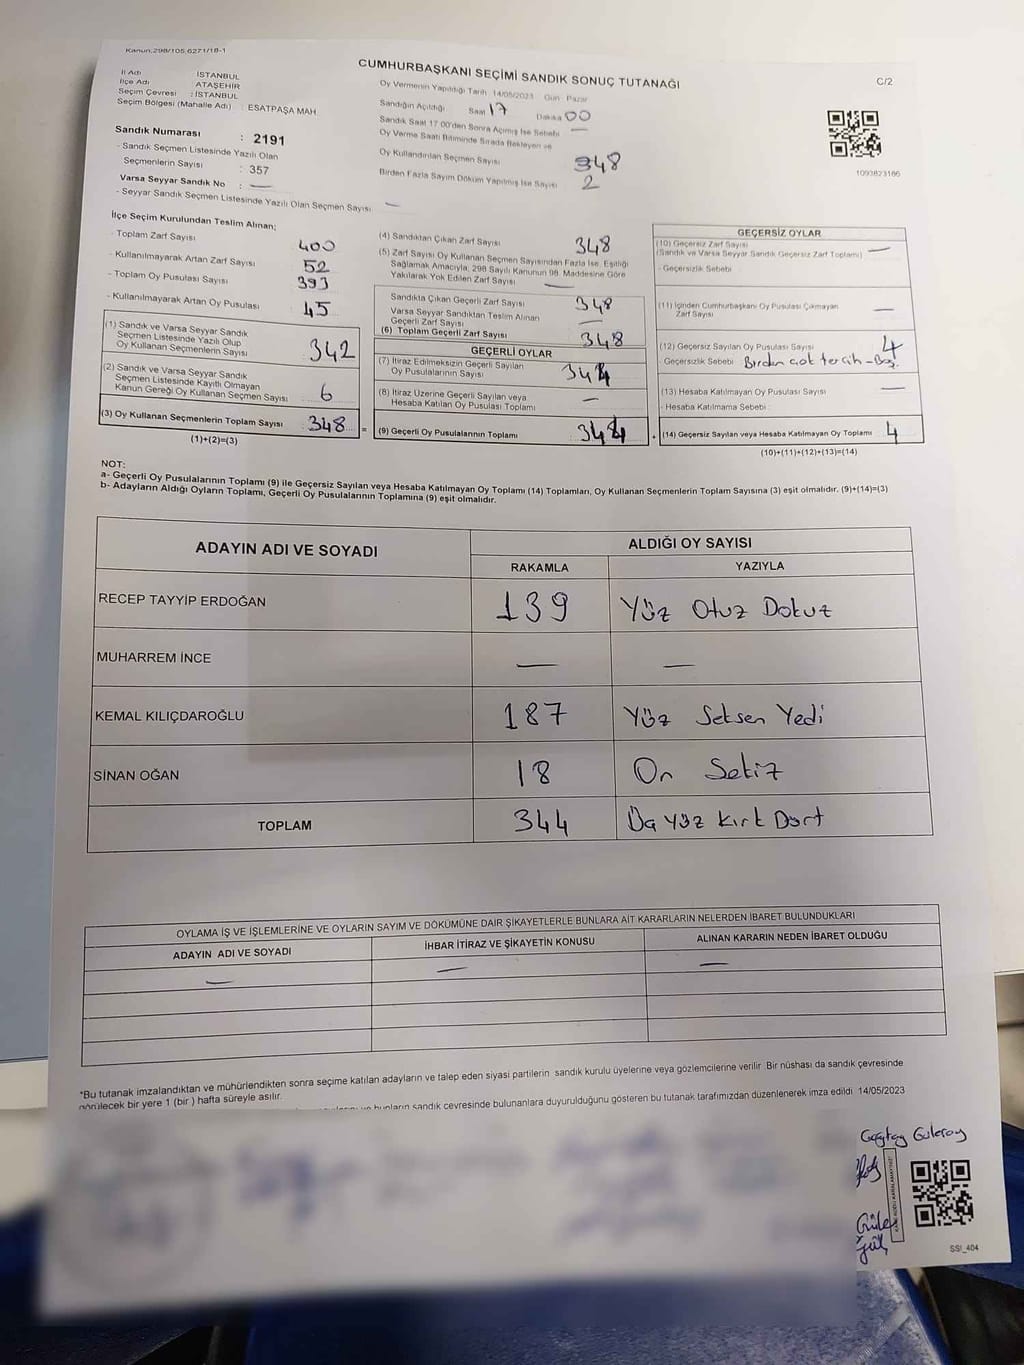 Kanun:298/105,6271/18-1
CUMHURBAŞKANI SEÇİMİ SANDIK SONUÇ TUTANAĞI
C/2
İl Adı : İSTANBUL
İlçe Adı : ATAŞEHİR
Seçim Çevresi : İSTANBUL
Seçim Bölgesi (Mahalle Adı) : ESATPAŞA MAH
Sandık Numarası : 2191
- Sandık Seçmen Listesinde Yazılı Olan
Seçmenlerin Sayısı : 357
Varsa Seyyar Sandık No : —
- Seyyar Sandık Seçmen Listesinde Yazılı Olan Seçmen Sayısı —
Oy Vermenin Yapıldığı Tarih 14/05/2023 Gün Pazar
Sandığın Açıldığı Saat 17 Dakika 00
Sandık Saat 17 00'den Sonra Açılmış İse Sebebi —
Oy Verme Saati Bitiminde Sırada Bekleyen ve
Oy Kullandırılan Seçmen Sayısı 348
Birden Fazla Sayım Döküm Yapılmış İse Sayısı 2
1093823166
İlçe Seçim Kurulundan Teslim Alınan;
- Toplam Zarf Sayısı 400
- Kullanılmayarak Artan Zarf Sayısı 52
- Toplam Oy Pusulası Sayısı 393
- Kullanılmayarak Artan Oy Pusulası 45
(1) Sandık ve Varsa Seyyar Sandık
Seçmen Listesinde Yazılı Olup
Oy Kullanan Seçmenlerin Sayısı 342
(2) Sandık ve Varsa Seyyar Sandık
Seçmen Listesinde Kayıtlı Olmayan
Kanun Gereği Oy Kullanan Seçmen Sayısı 6
(3) Oy Kullanan Seçmenlerin Toplam Sayısı 348 =
(1)+(2)=(3)
(4) Sandıktan Çıkan Zarf Sayısı 348
(5) Zarf Sayısı Oy Kullanan Seçmen Sayısından Fazla İse, Eşitliği
Sağlamak Amacıyla, 298 Sayılı Kanunun 98. Maddesine Göre
Yakılarak Yok Edilen Zarf Sayısı —
Sandıkta Çıkan Geçerli Zarf Sayısı 348
Varsa Seyyar Sandıktan Teslim Alınan
Geçerli Zarf Sayısı —
(6) Toplam Geçerli Zarf Sayısı 348
GEÇERLİ OYLAR
(7) İtiraz Edilmeksizin Geçerli Sayılan
Oy Pusulalarının Sayısı 344
(8) İtiraz Üzerine Geçerli Sayılan veya
Hesaba Katılan Oy Pusulası Toplamı —
(9) Geçerli Oy Pusulalarının Toplamı 344
GEÇERSİZ OYLAR
(10) Geçersiz Zarf Sayısı
(Sandık ve Varsa Seyyar Sandık Geçersiz Zarf Toplamı) —
- Geçersizlik Sebebi
(11) İçinden Cumhurbaşkanı Oy Pusulası Çıkmayan
Zarf Sayısı —
(12) Geçersiz Sayılan Oy Pusulası Sayısı 4
- Geçersizlik Sebebi Birden çok tercih - Boş.
(13) Hesaba Katılmayan Oy Pusulası Sayısı —
- Hesaba Katılmama Sebebi :
(14) Geçersiz Sayılan veya Hesaba Katılmayan Oy Toplamı 4
(10)+(11)+(12)+(13)=(14)
NOT:
a- Geçerli Oy Pusulalarının Toplamı (9) ile Geçersiz Sayılan veya Hesaba Katılmayan Oy Toplamı (14) Toplamları, Oy Kullanan Seçmenlerin Toplam Sayısına (3) eşit olmalıdır. (9)+(14)=(3)
b- Adayların Aldığı Oyların Toplamı, Geçerli Oy Pusulalarının Toplamına (9) eşit olmalıdır.
ADAYIN ADI VE SOYADI
ALDIĞI OY SAYISI
RAKAMLA YAZIYLA
RECEP TAYYİP ERDOĞAN 139 Yüz Otuz Dokuz
MUHARREM İNCE — —
KEMAL KILIÇDAROĞLU 187 Yüz Seksen Yedi
SİNAN OĞAN 18 On Sekiz
TOPLAM 344 Üç yüz kırk Dört
OYLAMA İŞ VE İŞLEMLERİNE VE OYLARIN SAYIM VE DÖKÜMÜNE DAİR ŞİKAYETLERLE BUNLARA AİT KARARLARIN NELERDEN İBARET BULUNDUKLARI
ADAYIN ADI VE SOYADI İHBAR İTİRAZ VE ŞİKAYETİN KONUSU ALINAN KARARIN NEDEN İBARET OLDUĞU
— — —
*Bu tutanak imzalandıktan ve mühürlendikten sonra seçime katılan adayların ve talep eden siyasi partilerin sandık kurulu üyelerine veya gözlemcilerine verilir Bir nüshası da sandık çevresinde
görülecek bir yere 1 (bir ) hafta süreyle asılır.
bunların sandık çevresinde bulunanlara duyurulduğunu gösteren bu tutanak tarafımızdan düzenlenerek imza edildi 14/05/2023
Güleray
SSI_404